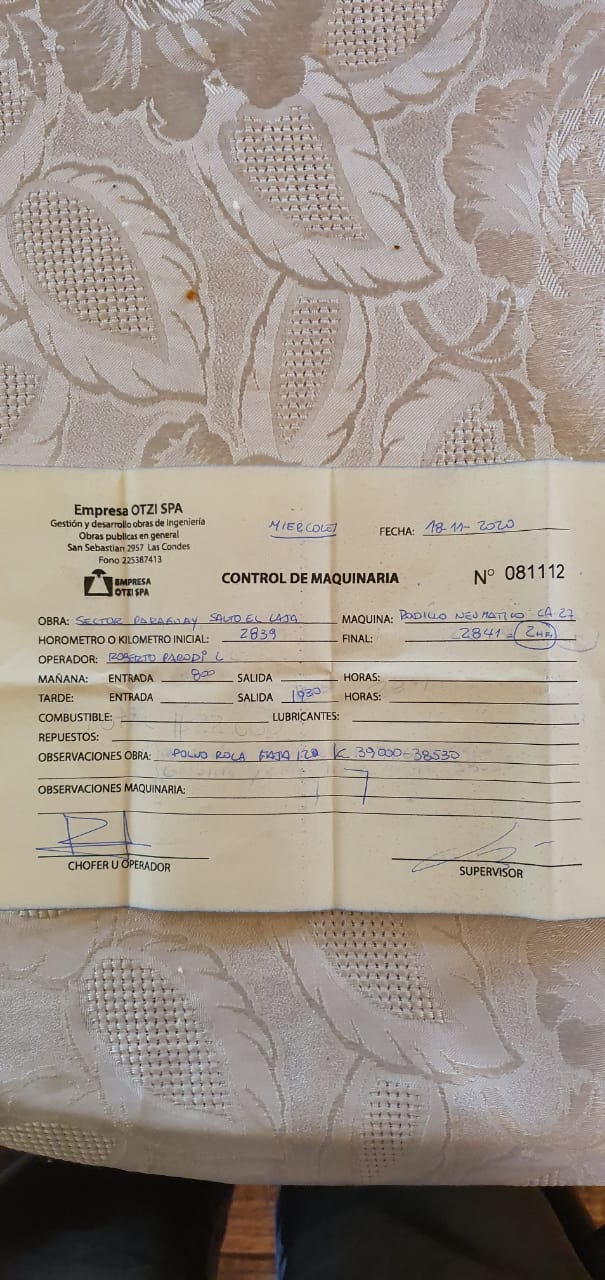 Empresa OTZI SPA
Gestión y desarrollo obras de Ingeniería
Obras publicas en general
San Sebastian 2957 Las Condes
Fono 225387413
EMPRESA
OTZI SPA
MIERCOLES FECHA: 18-11-2020
CONTROL DE MAQUINARIA N° 081112
OBRA: SECTOR PARAGUAY SALTO EL LAJA MAQUINA: RODILLO NEUMATICO CA 27
HOROMETRO O KILOMETRO INICIAL: 2839 FINAL: 2841 = 2 HR
OPERADOR: ROBERTO PARODI L
MAÑANA: ENTRADA 800 SALIDA HORAS:
TARDE: ENTRADA SALIDA 1930 HORAS:
COMBUSTIBLE: LUBRICANTES:
REPUESTOS:
OBSERVACIONES OBRA: POLVO ROCA FAJA K 39000-38530
OBSERVACIONES MAQUINARIA:
CHOFER U OPERADOR
SUPERVISOR